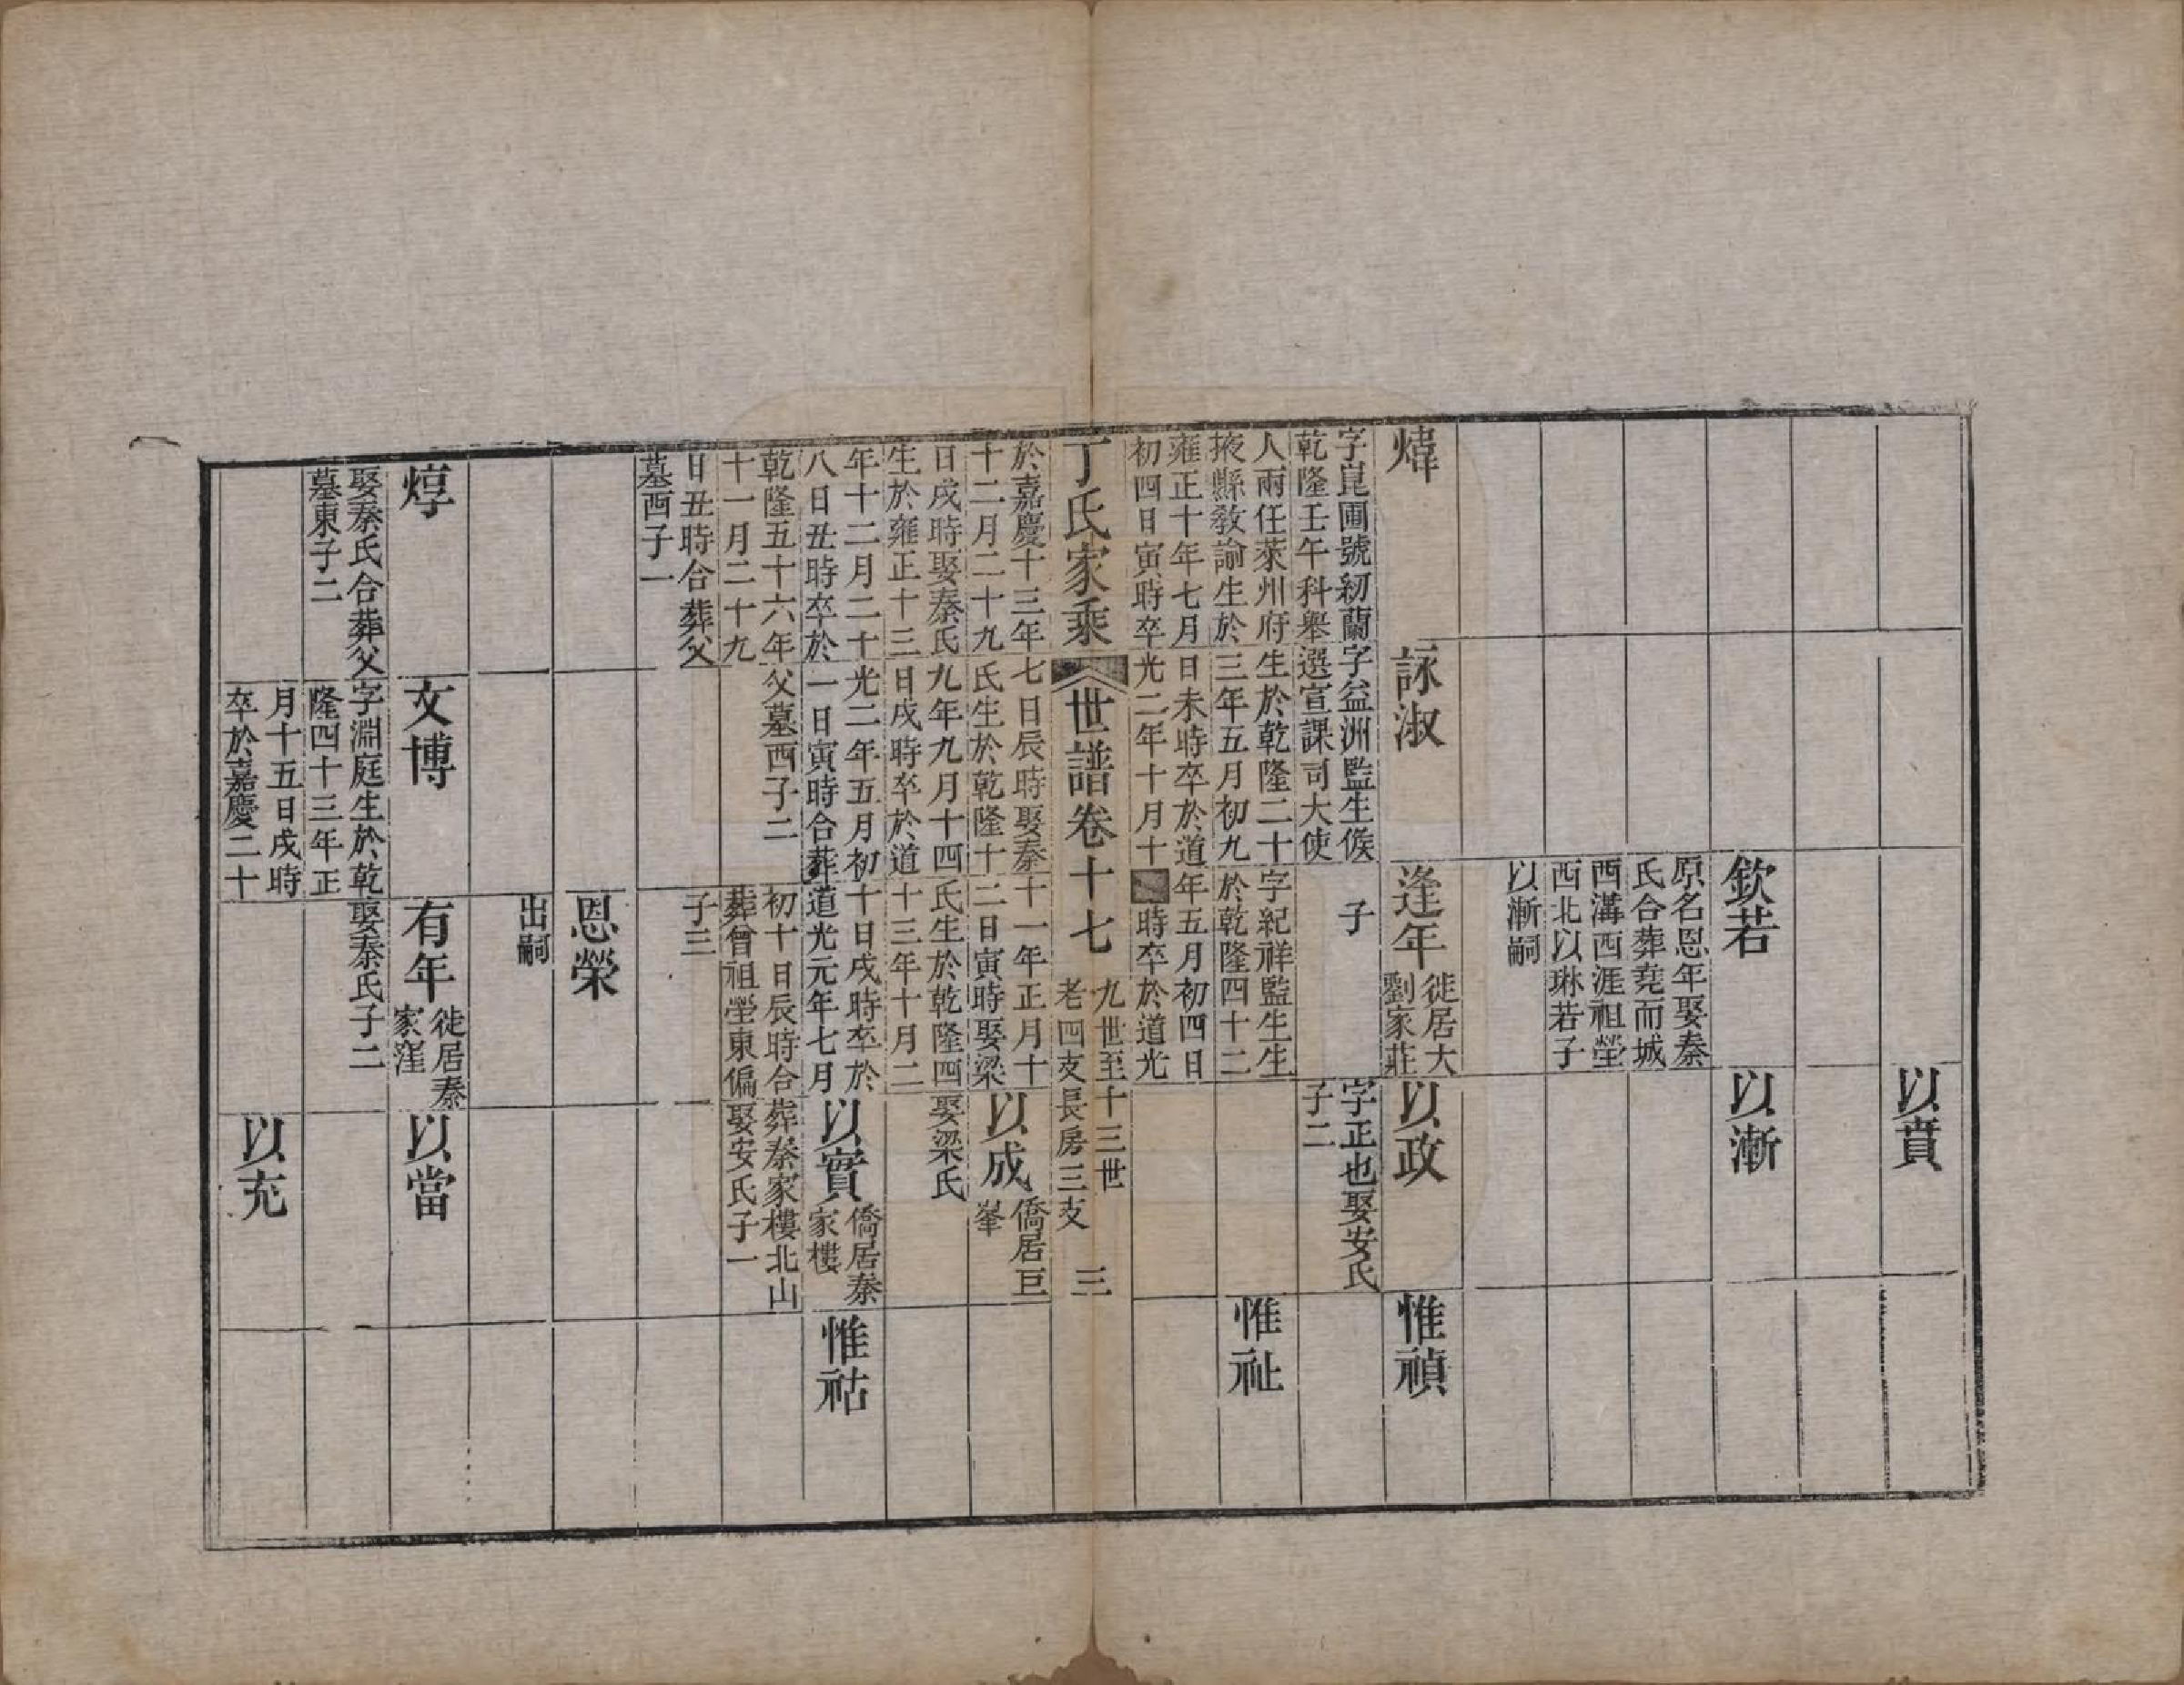 以賁
欽若
原名恩年娶秦
氏合葬堯而城
西溝西涯祖塋
西北以琳若子
以漸嗣
以漸
煒
字崑圃號紉蘭
乾隆壬午科舉
人兩任萊州府
掖縣教諭生於
雍正十年七月
初四日寅時卒
於嘉慶十三年
十二月二十九
日戌時娶秦氏
生於雍正十三
年十二月二十
八日丑時卒於
乾隆五十六年
十一月二十九
日丑時合葬父
墓西子一
詠淑
字益洲監生候
選宣課司大使
生於乾隆二十
三年五月初九
日未時卒於道
光二年十月十
七日辰時娶秦
氏生於乾隆十
九年九月十四
日戌時卒於道
光二年五月初
一日寅時合葬
父墓西子二
逢年
徙居大
劉家莊
子
字紀祥監生生
於乾隆四十二
年五月初四日
時卒於道光
十一年正月十
二日寅時娶梁
氏生於乾隆四
十三年十月二
十日戌時卒於
道光元年七月
初十日辰時合
葬曾祖塋東偏
子三
以政
字正也娶安氏
子二
惟禎
惟祉
丁氏家乘
世譜卷十七
九世至十三世
老四支長房三支
三
以成
僑居巨
峯
娶梁氏
以實
僑居秦
家樓
葬秦家樓北山
娶安氏子一
惟祜
恩榮
出嗣
焞
娶秦氏合葬父
墓東子二
文博
字淵庭生於乾
隆四十三年正
月十五日戌時
卒於嘉慶二十
有年
徙居秦
家窪
娶秦氏子二
以當
以充